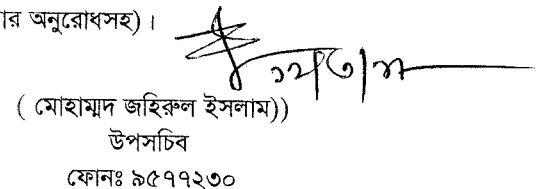 র অনুরোধসহ)।
( মোহাম্মদ জহিরুল ইসলাম))
উপসচিব
ফোনঃ ৯৫৭৭২৩০